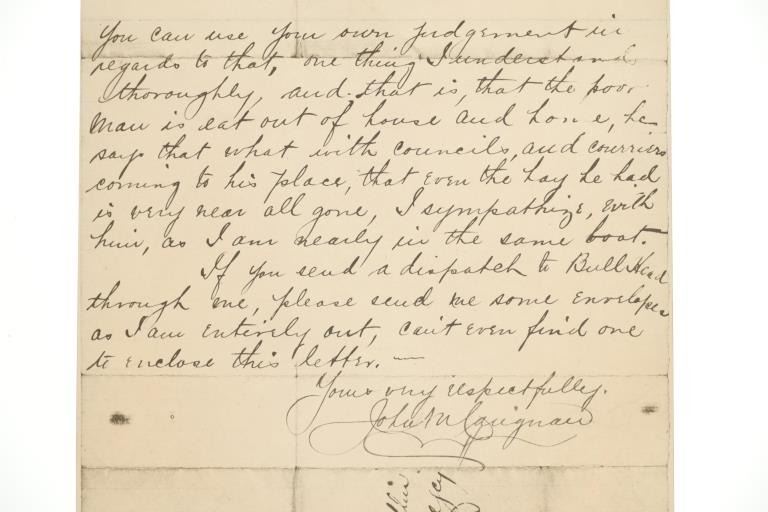 You can use your own judgement in
regards to that, one thing I understand
thoroughly, and that is, that the poor
man is eat out of house and home, he
says that what with councils, and courriers
coming to his place, that even the hay he had
is very near all gone, I sympathize, with
him, as I am nearly in the same boat.
If you send a dispatch to Bull Head
through me, please send me some envelopes
as I am entirely out, cant even find one
to enclose this letter. —
Yours very respectfully.
John M Carignan